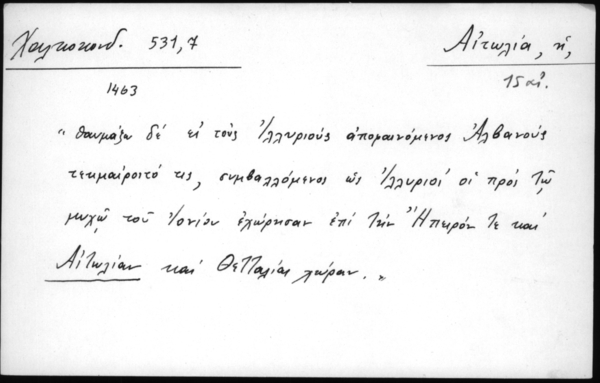 Χαλκοκονδ. 531,7
Αἰτωλία, ἡ,
1463
15 αἰ.
" θαυμάζω δέ εἰ τοὺς Ἰλλυριοὺς ἀποφαινόμενος Ἀλβανούς
τεκμαίροιτό τις, συμβαλλόμενος ὡς Ἰλλυριοί οἱ πρός τῷ
μυχῷ τοῦ Ἰονίου ἐχώρησαν ἐπί τήν Ἤπειρόν τε καί
Αἰτωλίαν καί Θετταλίας χώραν. "